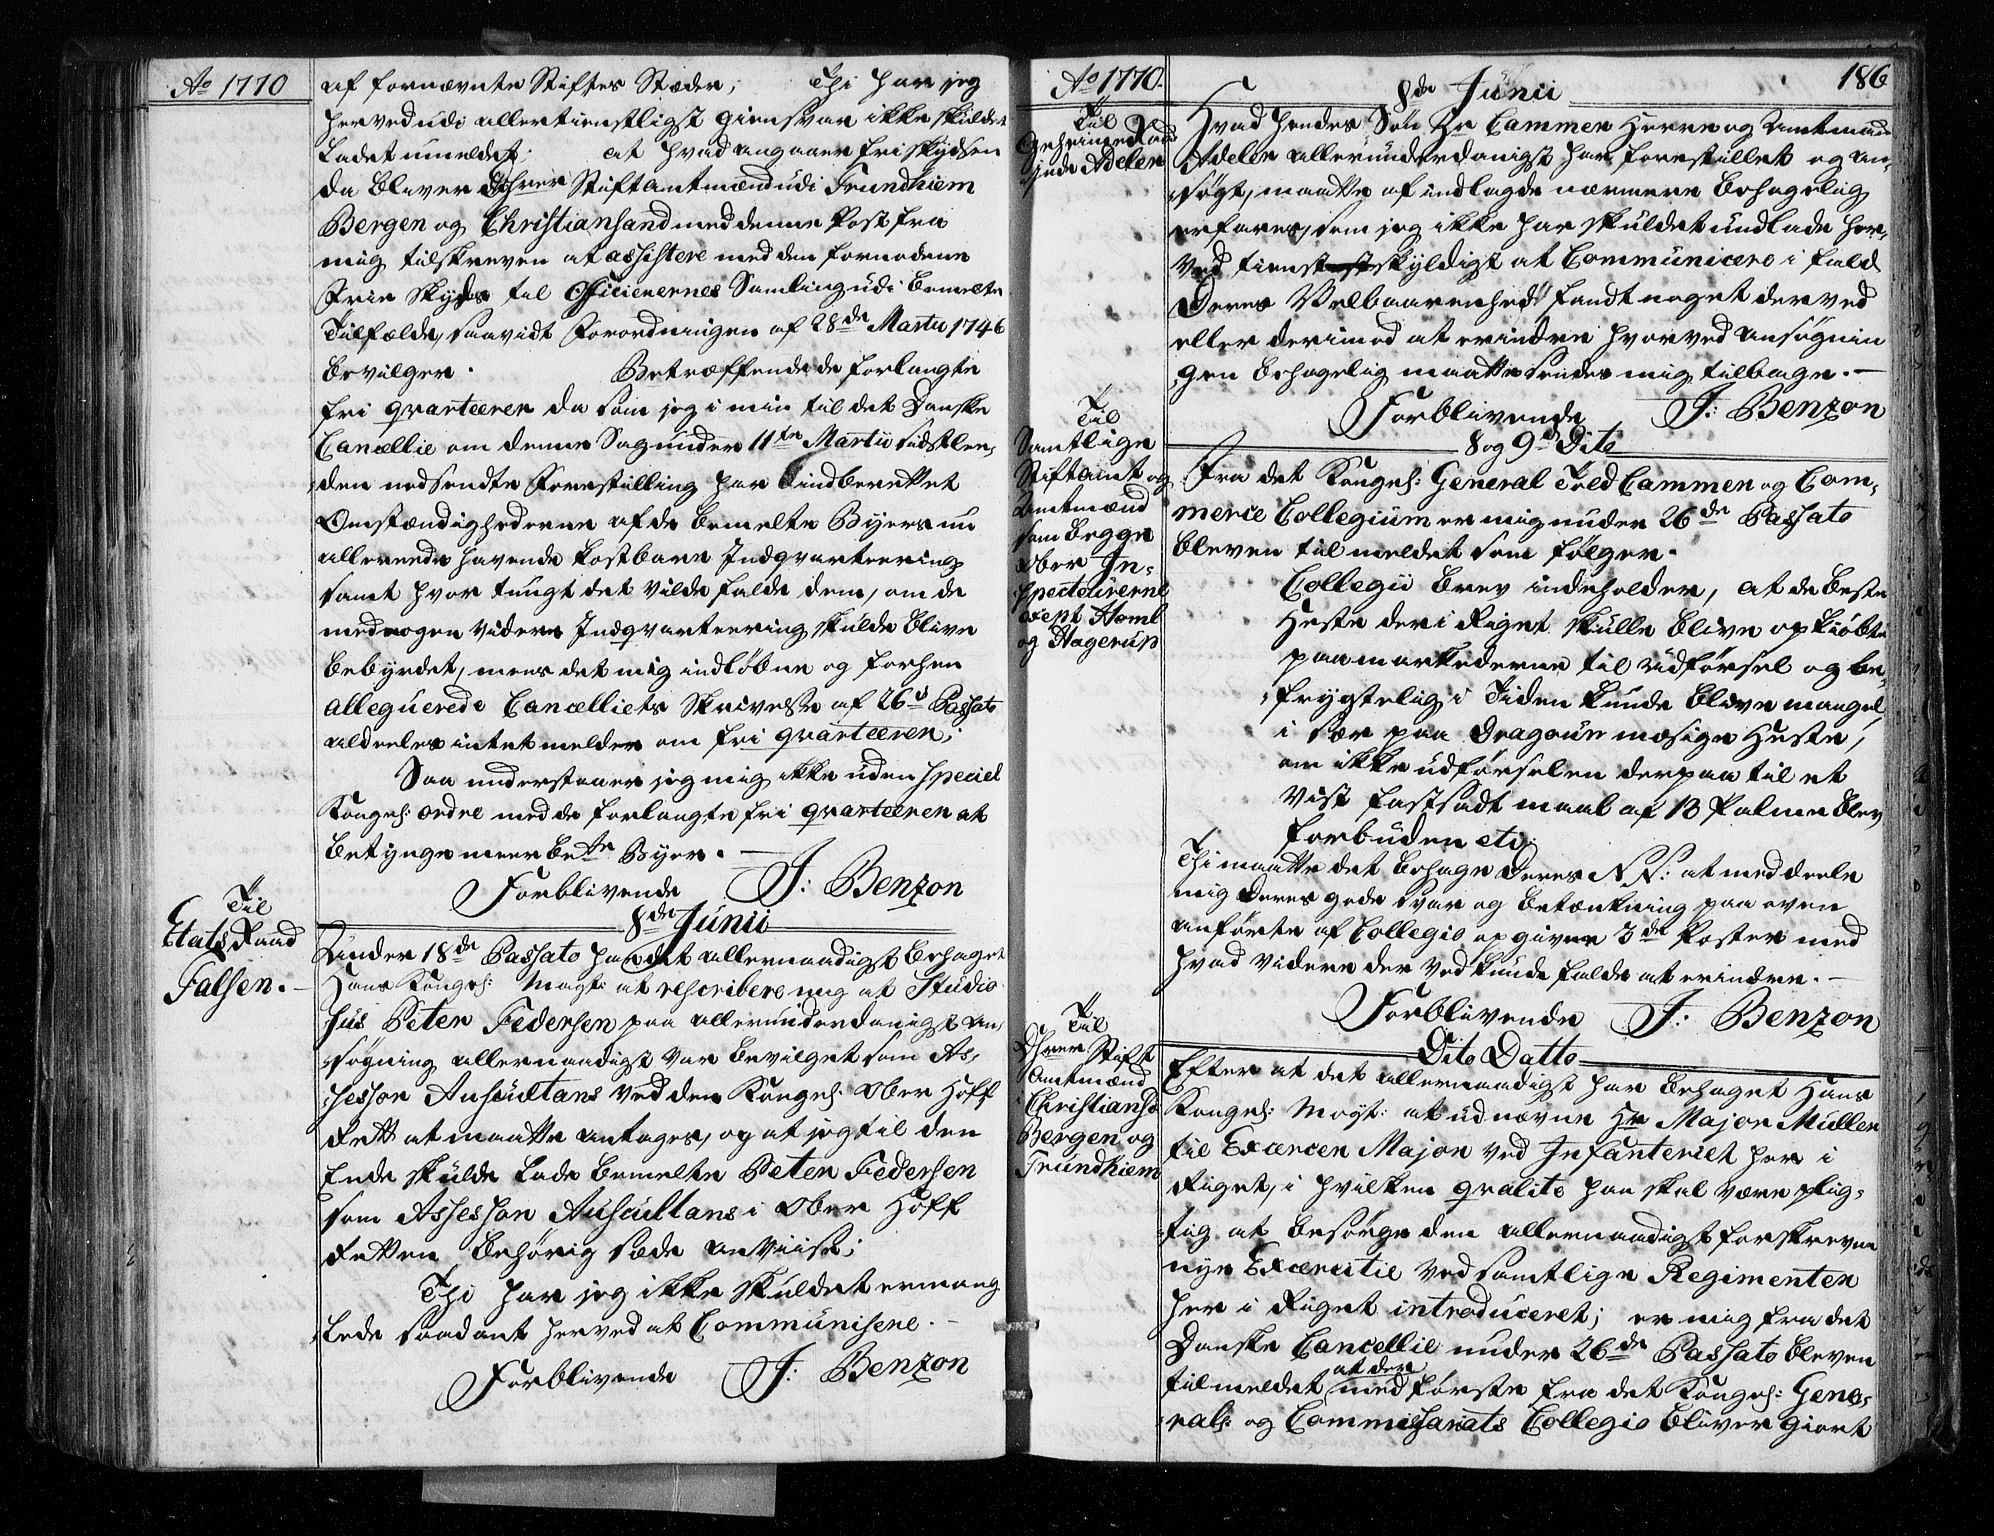 Ao 1770
af fornævnte Stifters Stæder; Thi har jeg
herved udi allertienstligst giensvar ikke skuldet
Ladet umeldet; at hvad angaaer friskydsen
da bliver Dhrer Stiftamtmænd udi Trundhiem
Bergen og Christiansand med denne Post fra
mig tilskreven at assistere med den fornødene
Frie skyds til Officierernes Samling udi bemelte
Tilfælde, saavidt Forordningen af 28de Martii 1746
bevilger. Betræffende de forlangte
fri qvarteerer da som jeg i min til det Danske
Cancellie om denne Sag under 11te Martii sidstlee,
,den nedsendte Forestilling har indberettet
Omstændighederne af de bemelte Byers nu
allereede havende kostbare Indqvarteering
samt hvor tungt det vilde falde dem, om de
med nogen videre Indqvarteering skulde blive
bebyrdet, mens det mig indløbne og forhen
alleguerede Cancelliets Skrivelse af 26d Passato
aldeeles intet melder om fri qvarteerer;
Saa understaaer jeg mig ikke uden speciel
Kongel: ordre med de forlangte fri qvarteerer at
betynge meerbete Byer.
Forblivende J: Benzon
8de Junii
Til
Etats Raad
Falsen.
Under 18de Passato har det allernaadigst behaget
Hans Kongel: Mayt: at rescribere mig at Studio
sus Peter Federsen paa allerunderdanigst an,
,søgning allernaadigst var bevilget som As,
,sessor Auscultans ved den Kongel: Ober Hoff
Rett at maatte antages, og at jeg til den
Ende skulde lade bemelte Peter Federsen
som Assessor Auscultans i Ober Hoff
Retten behørig sæde anviise;
Thi har jeg ikke skuldet ermang
,lede saadant herved at Communisere.
Forblivende J: Benzon
Ao 1770.
186
8de Junii
Til
Geheime Raad
inde Adeler
Hvad hendes Søn Hr Cammer Herre og Amtmand
Adeler allerunderdanigst har forestillet og an,
,søgt, maatte af indlagde nærmere behagelig
erfares, som jeg ikke har skuldet undlade her,
ved tienstskyldigt at Communicere i fald
Deres Velbaarenhed fandt noget derved
eller derimod at erindre hvorved ansøgnin
,gen behagelig maatte sendes mig tilbage.
Forblivende J: Benzon
8 og 9de Dito
Til
Samtlige
Stiftamt og
Amtmænd
som begge
Ober In-
specteurerne
exept Heml
og Hagerup
Fra det Kongel: General Told Cammer og Com,
merce Collegium er mig under 26de Passato
bleven tilmeldet som følger.
Collegii brev indeholder, at de beste
Heste der i Riget skulle blive opkiøbte
paa markederne til udførsel og be,
,frygtelig i Tiden kunde blive mangel,
i sær paa Dragoun mæsige Heste,
om ikke udførselen derpaa til et
vist fastsadt maal af 13 Palmer blev
forbuden etc:
Thi maatte det behage Deres N N: at meddeele
mig Deres gode svar og betænkning paa oven
anførte af Collegio opgivne 3de Poster med
hvad videre der ved kunde falde at erindre.
Forblivende J: Benzon
Dito Datto
Til
Dhrer Stift
Amtmænd
i Christiansd
Bergen og
Trundhiem
Efter at det allernaadigst har behaget Hans
Kongel: Mayt: at udnævne Hr Major Müller
til Exercer Major ved Infanteriet her i
Riget, i hvilken qvalite han skal være plig,
,tig at besørge den allernaadigst forskrevne
nye Exercitie ved samtlige Regimenter
her i Riget introduceret; er mig fra det
Danske Cancellie under 26de Passato bleven
tilmeldet at der med første fra det Kongel: Gene,
,ral: og Commissariats Collegio bliver giort